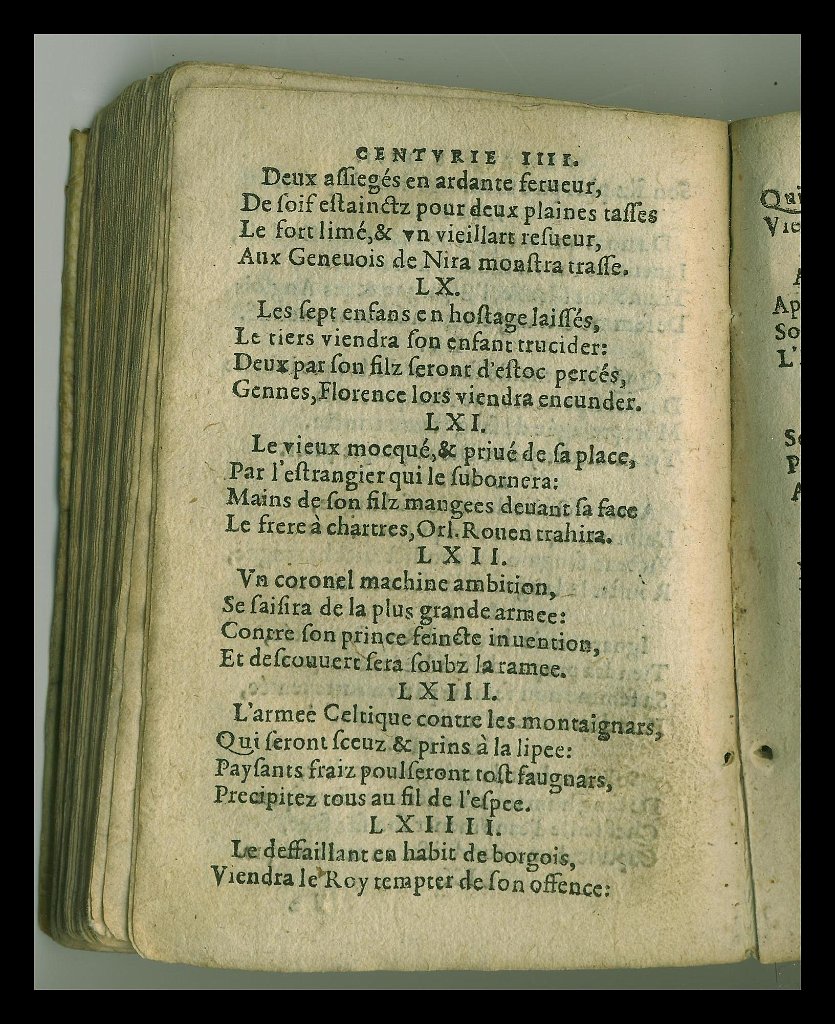 CENTVRIE IIII.
Deux aſſiegés en ardante ferueur,
De ſoif eſtainctz pour deux plaines taſſes
Le fort limé,& vn vieillart reſueur,
Aux Geneuois de Nira monſtra traſſe.
LX.
Les ſept enfans en hoſtage laiſſés,
Le tiers viendra ſon enfant trucider:
Deux par ſon filz ſeront d'eſtoc percés,
Gennes,Florence lors viendra encunder.
LXI.
Le vieux mocqué,& priué de ſa place,
Par l'eſtrangier qui le ſubornera:
Mains de ſon filz mangees deuant ſa face
Le frere à chartres,Orl.Rouen trahira.
LXII.
Vn coronel machine ambition,
Se ſaiſira de la plus grande armee:
Contre ſon prince feincte inuention,
Et deſcouuert ſera ſoubz la ramee.
LXIII.
L'armee Celtique contre les montaignars,
Qui ſeront ſceuz & prins à la lipee:
Payſants fraiz poulſeront toſt faugnars,
Precipitez tous au fil de l'eſpee.
LXIIII.
Le deffaillant en habit de borgois,
Viendra le Roy tempter de ſon offence:
Qui
Vie
Ap
So
L'
Se
P
A